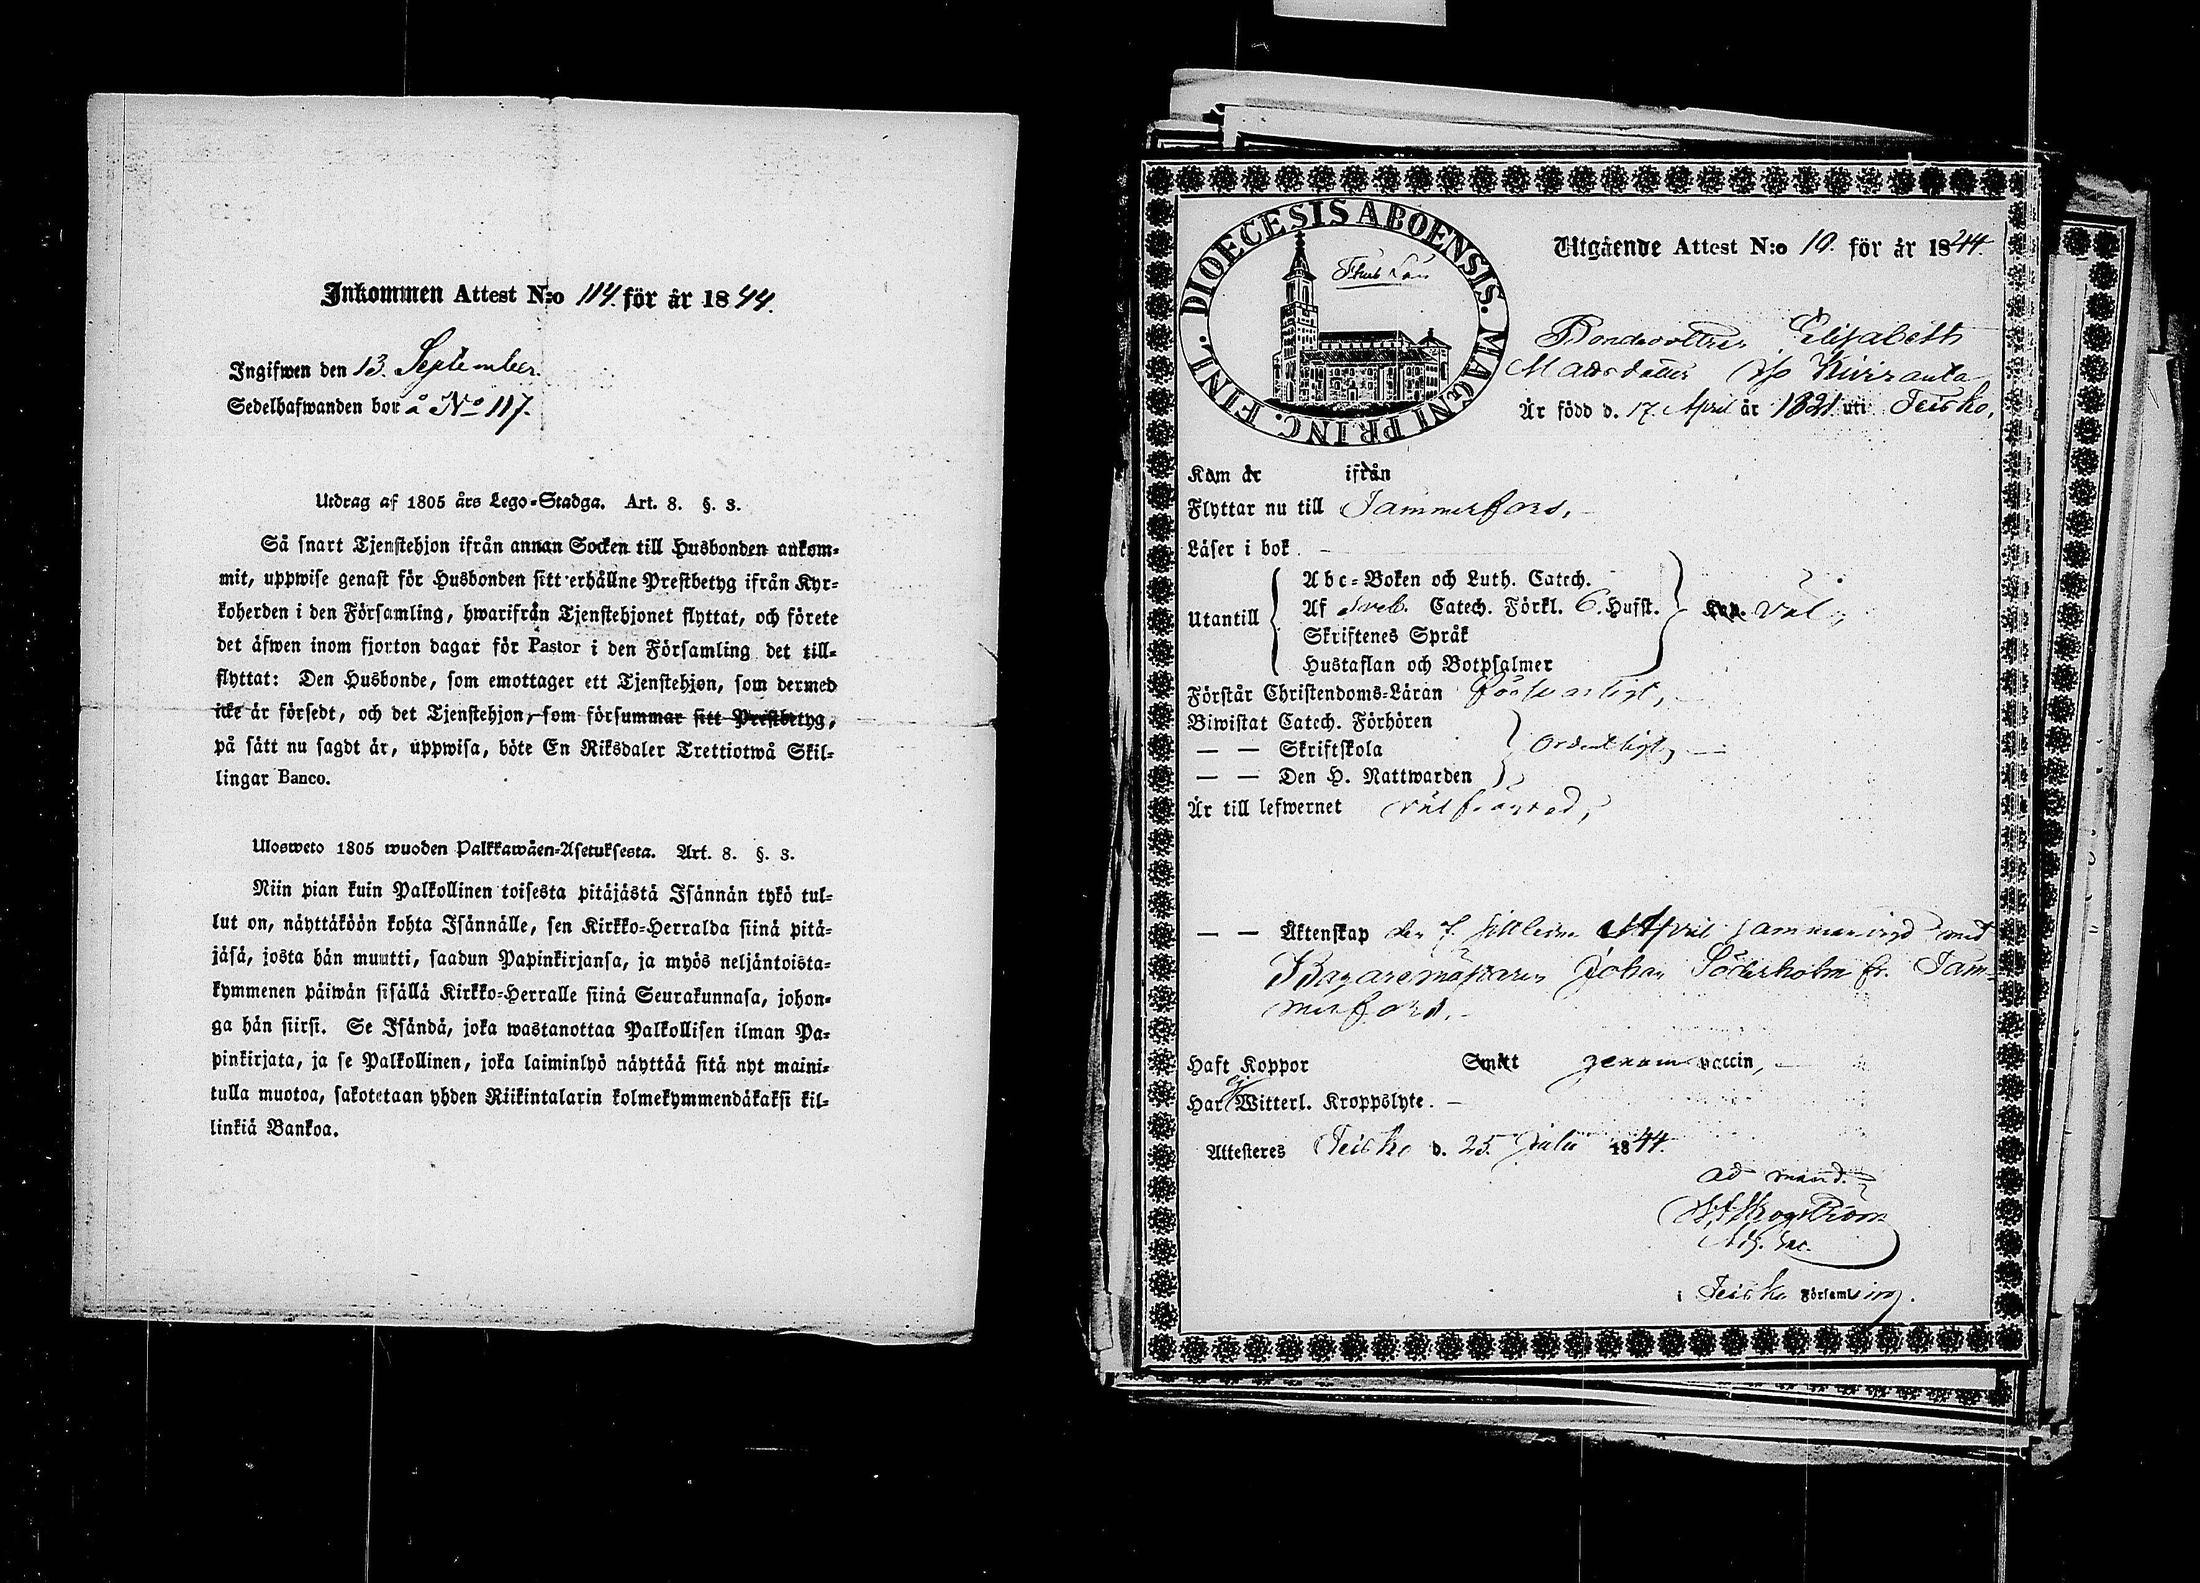 Inkommen Attest N:o 114. för år 1844.
Ingifwen den 13. September.
Sedelhafwanden bor å No 117.
Utdrag af 1805 års Lego-Stadga. Art. 8. §. 3.
Så snart Tjenstehjon ifrån annan Socken till Husbonden ankom-
mit, uppwise genast för Husbonden sitt erhållne Prestbetyg ifrån Kyr-
koherden i den Församling, hwarifrån Tjenstehjonet flyttat, och förete
det äfwen inom fjorton dagar för Pastor i den Församling det till-
flyttat: Den Husbonde, som emottager ett Tjenstehjon, som dermed
icke är försedt, och det Tjenstehjon, som försummar sitt Prestbetyg,
på sätt nu sagdt är, uppwisa, böte En Riksdaler Trettiotwå Skil-
lingar Banco.
Ulosweto 1805 wuoden Palkkawäen-Asetuksesta. Art. 8. §. 3.
Niin pian kuin Palkollinen toisesta pitäjästä Isännän tykö tul-
lut on, näyttäköön kohta Isännälle, sen Kirkko-Herralda siinä pitä-
jäsä, josta hän muutti, saadun Papinkirjansa, ja myös neljäntoista-
kymmenen päiwän sisällä Kirkko-Herralle siinä Seurakunnasa, johon-
ga hän siirsi. Se Isändä, joka wastanottaa Palkollisen ilman Pa-
pinkirjata, ja se Palkollinen, joka laiminlyö näyttää sitä nyt maini-
tulla muotoa, sakotetaan yhden Riikintalarin kolmekymmendäkaksi kil-
linkiä Bankoa.
DIOECESIS ABOENSIS. MAGNI PRINC. FINL.
Utgående Attest N:o 10. för år 1844.
Bondedottren Elisabeth
Matsdotter
Är född d. 17. April år 1821 uti Teisko.
Kom år ifrån
Flyttar nu till Tammerfors.
Läser i bok
Utantill
Abc-Boken och Luth. Catech.
Af Sveb. Catech. Förkl. 6. Hufst.
Skriftenes Språk
Hustaflan och Botpsalmer
väl
Förstår Christendoms-Läran försvarligt,
Biwistat Catech. Förhören
— — Skriftskola
— — Den H. Nattwarden
ordentligt,
Är till lefwernet välfrägdad,
— — Äktenskap den 7 sistledne April sammanvigd med
Johan Söderholm fr. Tam-
merfors.
Haft Koppor Smitt genom vaccin,
Har ej Witterl. Kroppslyte.
Attesteres Teisko d. 25. Julii 1844.
ad mand.
Adj. Sac.
i Teisko Församling.